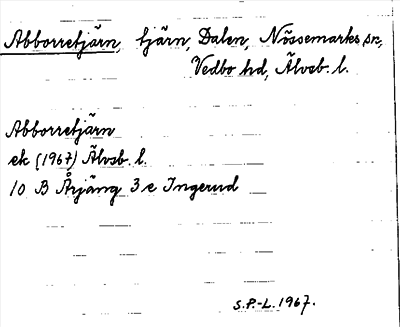 Abborretjärn, tjärn, Dalen, Nössemarks sn,
Vedbo hd, Älvsb. l.
Abborretjärn
ek (1967) Älvsb. l.
10 B Årjäng 3 e Ingerud
S.P.-L. 1967.